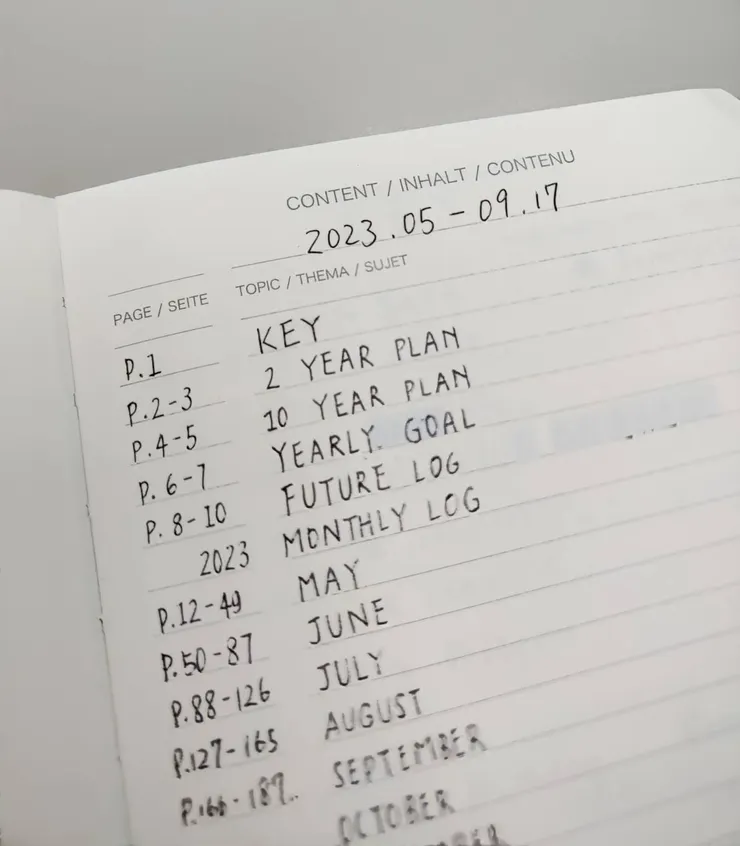 CONTENT / INHALT / CONTENU
2023.05 - 09.17
PAGE / SEITE TOPIC / THEMA / SUJET
P.1 KEY
P.2-3 2 YEAR PLAN
P.4-5 10 YEAR PLAN
P. 6-7 YEARLY GOAL
P. 8-10 FUTURE LOG
2023 MONTHLY LOG
P.12-49 MAY
P.50-87 JUNE
P.88-126 JULY
P.127-165 AUGUST
P.166-187.. SEPTEMBER
OCTOBER